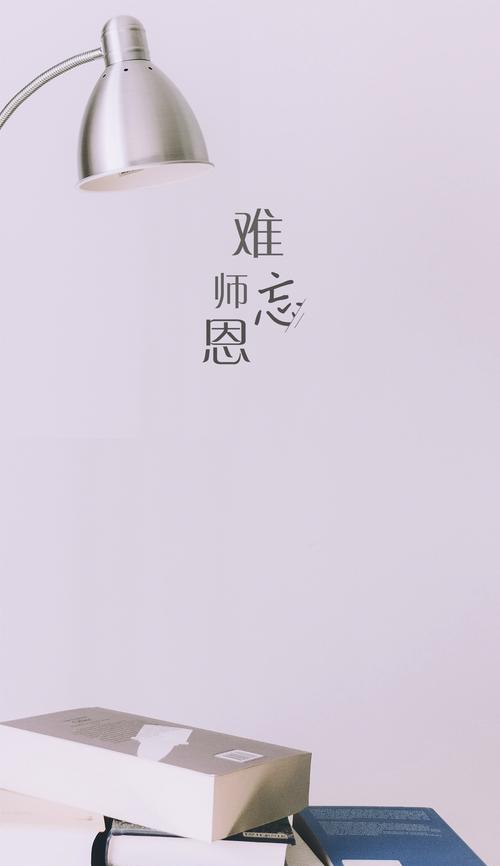 难忘
师恩